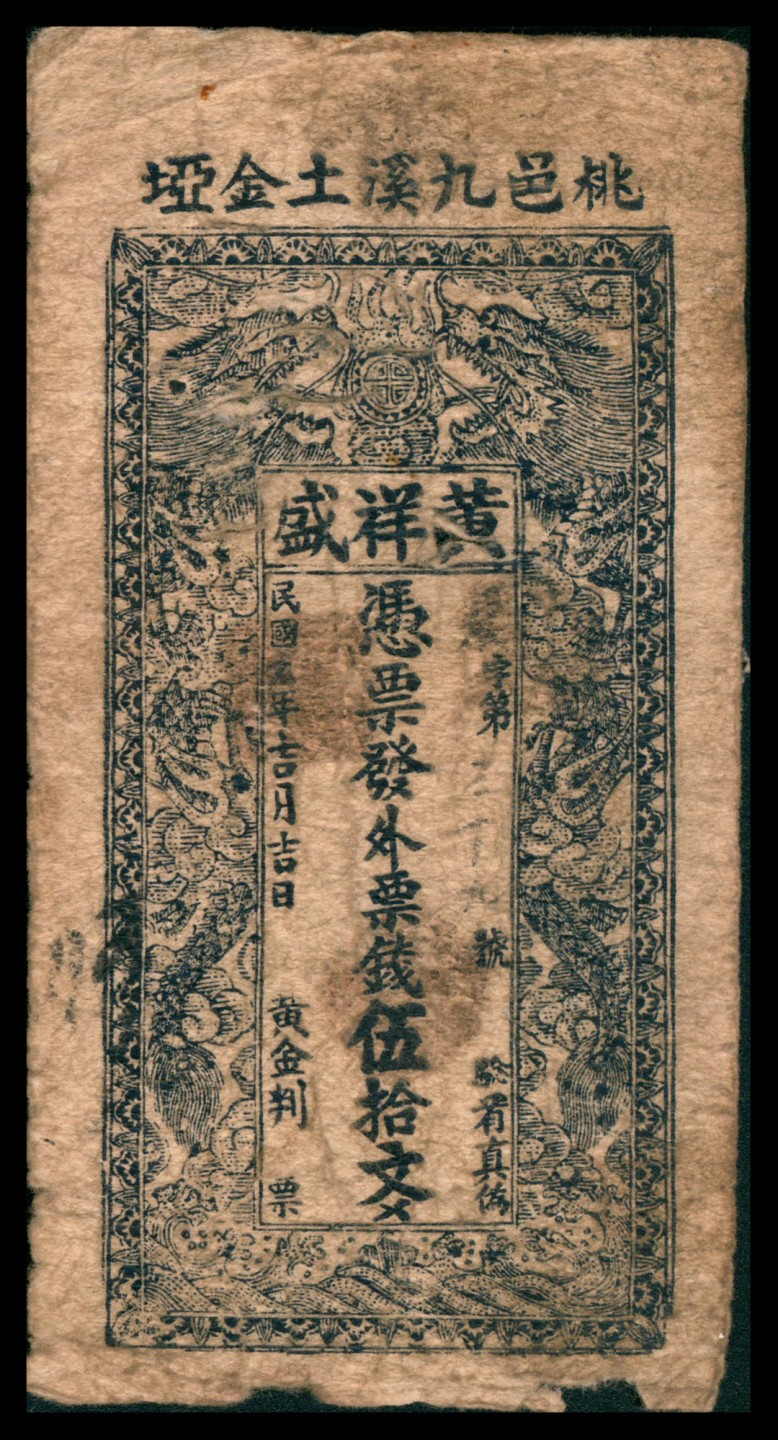 桃邑九溪土金埡
黃祥盛
字第 九號 驗看真偽
憑票發外票錢伍拾文
民國 年吉月吉日 黃金判票